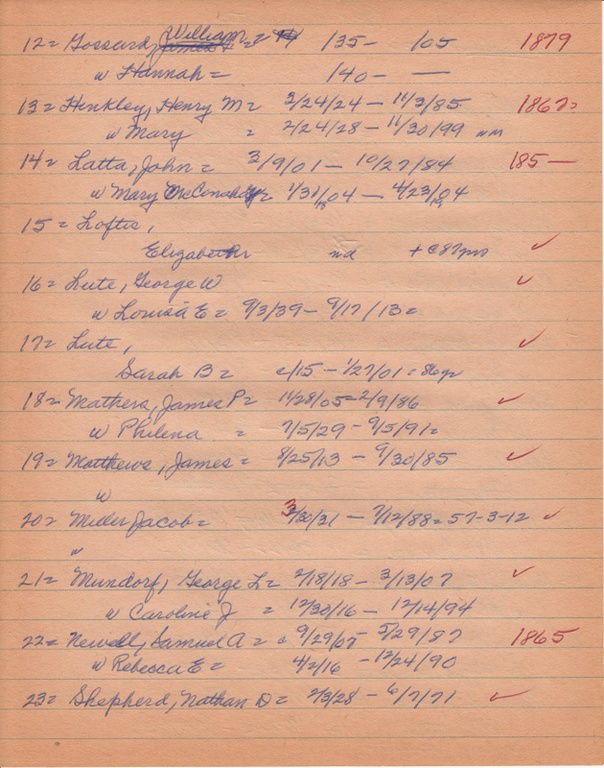 12 = Gossard, William =          135 –     105     1879
w Hannah =     140 –     —
13 = Hinkley, Henry M = 3/24/24 – 11/3/85     1867 =
w Mary     =     2/24/28 – 11/30/99   nm
14 = Latta, John =     3/9/01 – 10/27/84     185 —
w Mary McConahay = 1/31/04 – 4/23/04
15 = Loftis,
Elizabeth     nd     + c 87 yrs ✓
16 = Lute, George W     ✓
w Louisa E = 9/3/39 – 9/17/13 =
17 = Lute,     ✓
Sarah B =     c/15 – 1/27/01 = 86 yr
18 = Mathers, James P = 11/28/05 = 2/9/86     ✓
w Philena     =     7/5/29 – 9/5/91 =
19 = Matthews, James =     8/25/13 – 9/30/85     ✓
w
20 = Miller, Jacob =     3/30/31 – 7/12/88 = 57-3-12     ✓
w
21 = Mundorf, George L = 2/18/18 – 3/13/07     ✓
w Caroline J     =     12/30/16 – 12/14/94
22 = Newell, Samuel A =     9/29/07 – 5/29/87     1865
w Rebecca E =     4/2/16 – 12/24/90
23 = Shepherd, Nathan D =     2/3/28 – 6/7/71     ✓